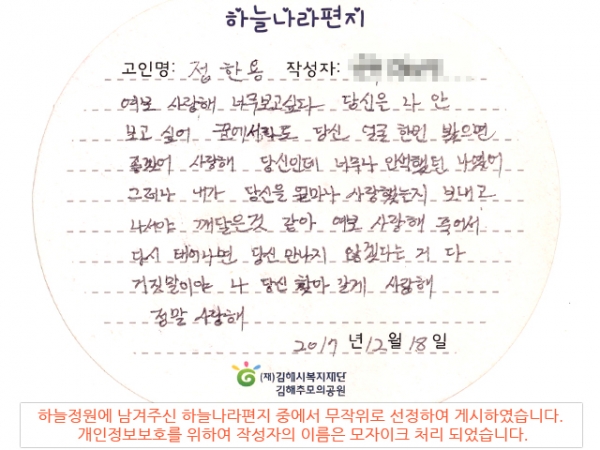 하늘나라편지
고인명: 정한용 작성자:
여보 사랑해 너무보고싶다 당신은 나 안
보고 싶어 꿈에서라도 당신 얼굴 한번 봤으면
좋겠어 사랑해 당신인데 너무나 인색했던 나였어
그러나 내가 당신을 얼마나 사랑했는지 보내고
나서야 깨달은것 같아 여보 사랑해 죽어서
다시 태어나면 당신 만나지 않겠다는 거 다
거짓말이야 나 당신 찾아 갈게 사랑해
정말 사랑해
2017 년 12 월 18 일
(재)김해시복지재단
김해추모의공원
하늘정원에 남겨주신 하늘나라편지 중에서 무작위로 선정하여 게시하였습니다.
개인정보보호를 위하여 작성자의 이름은 모자이크 처리 되었습니다.